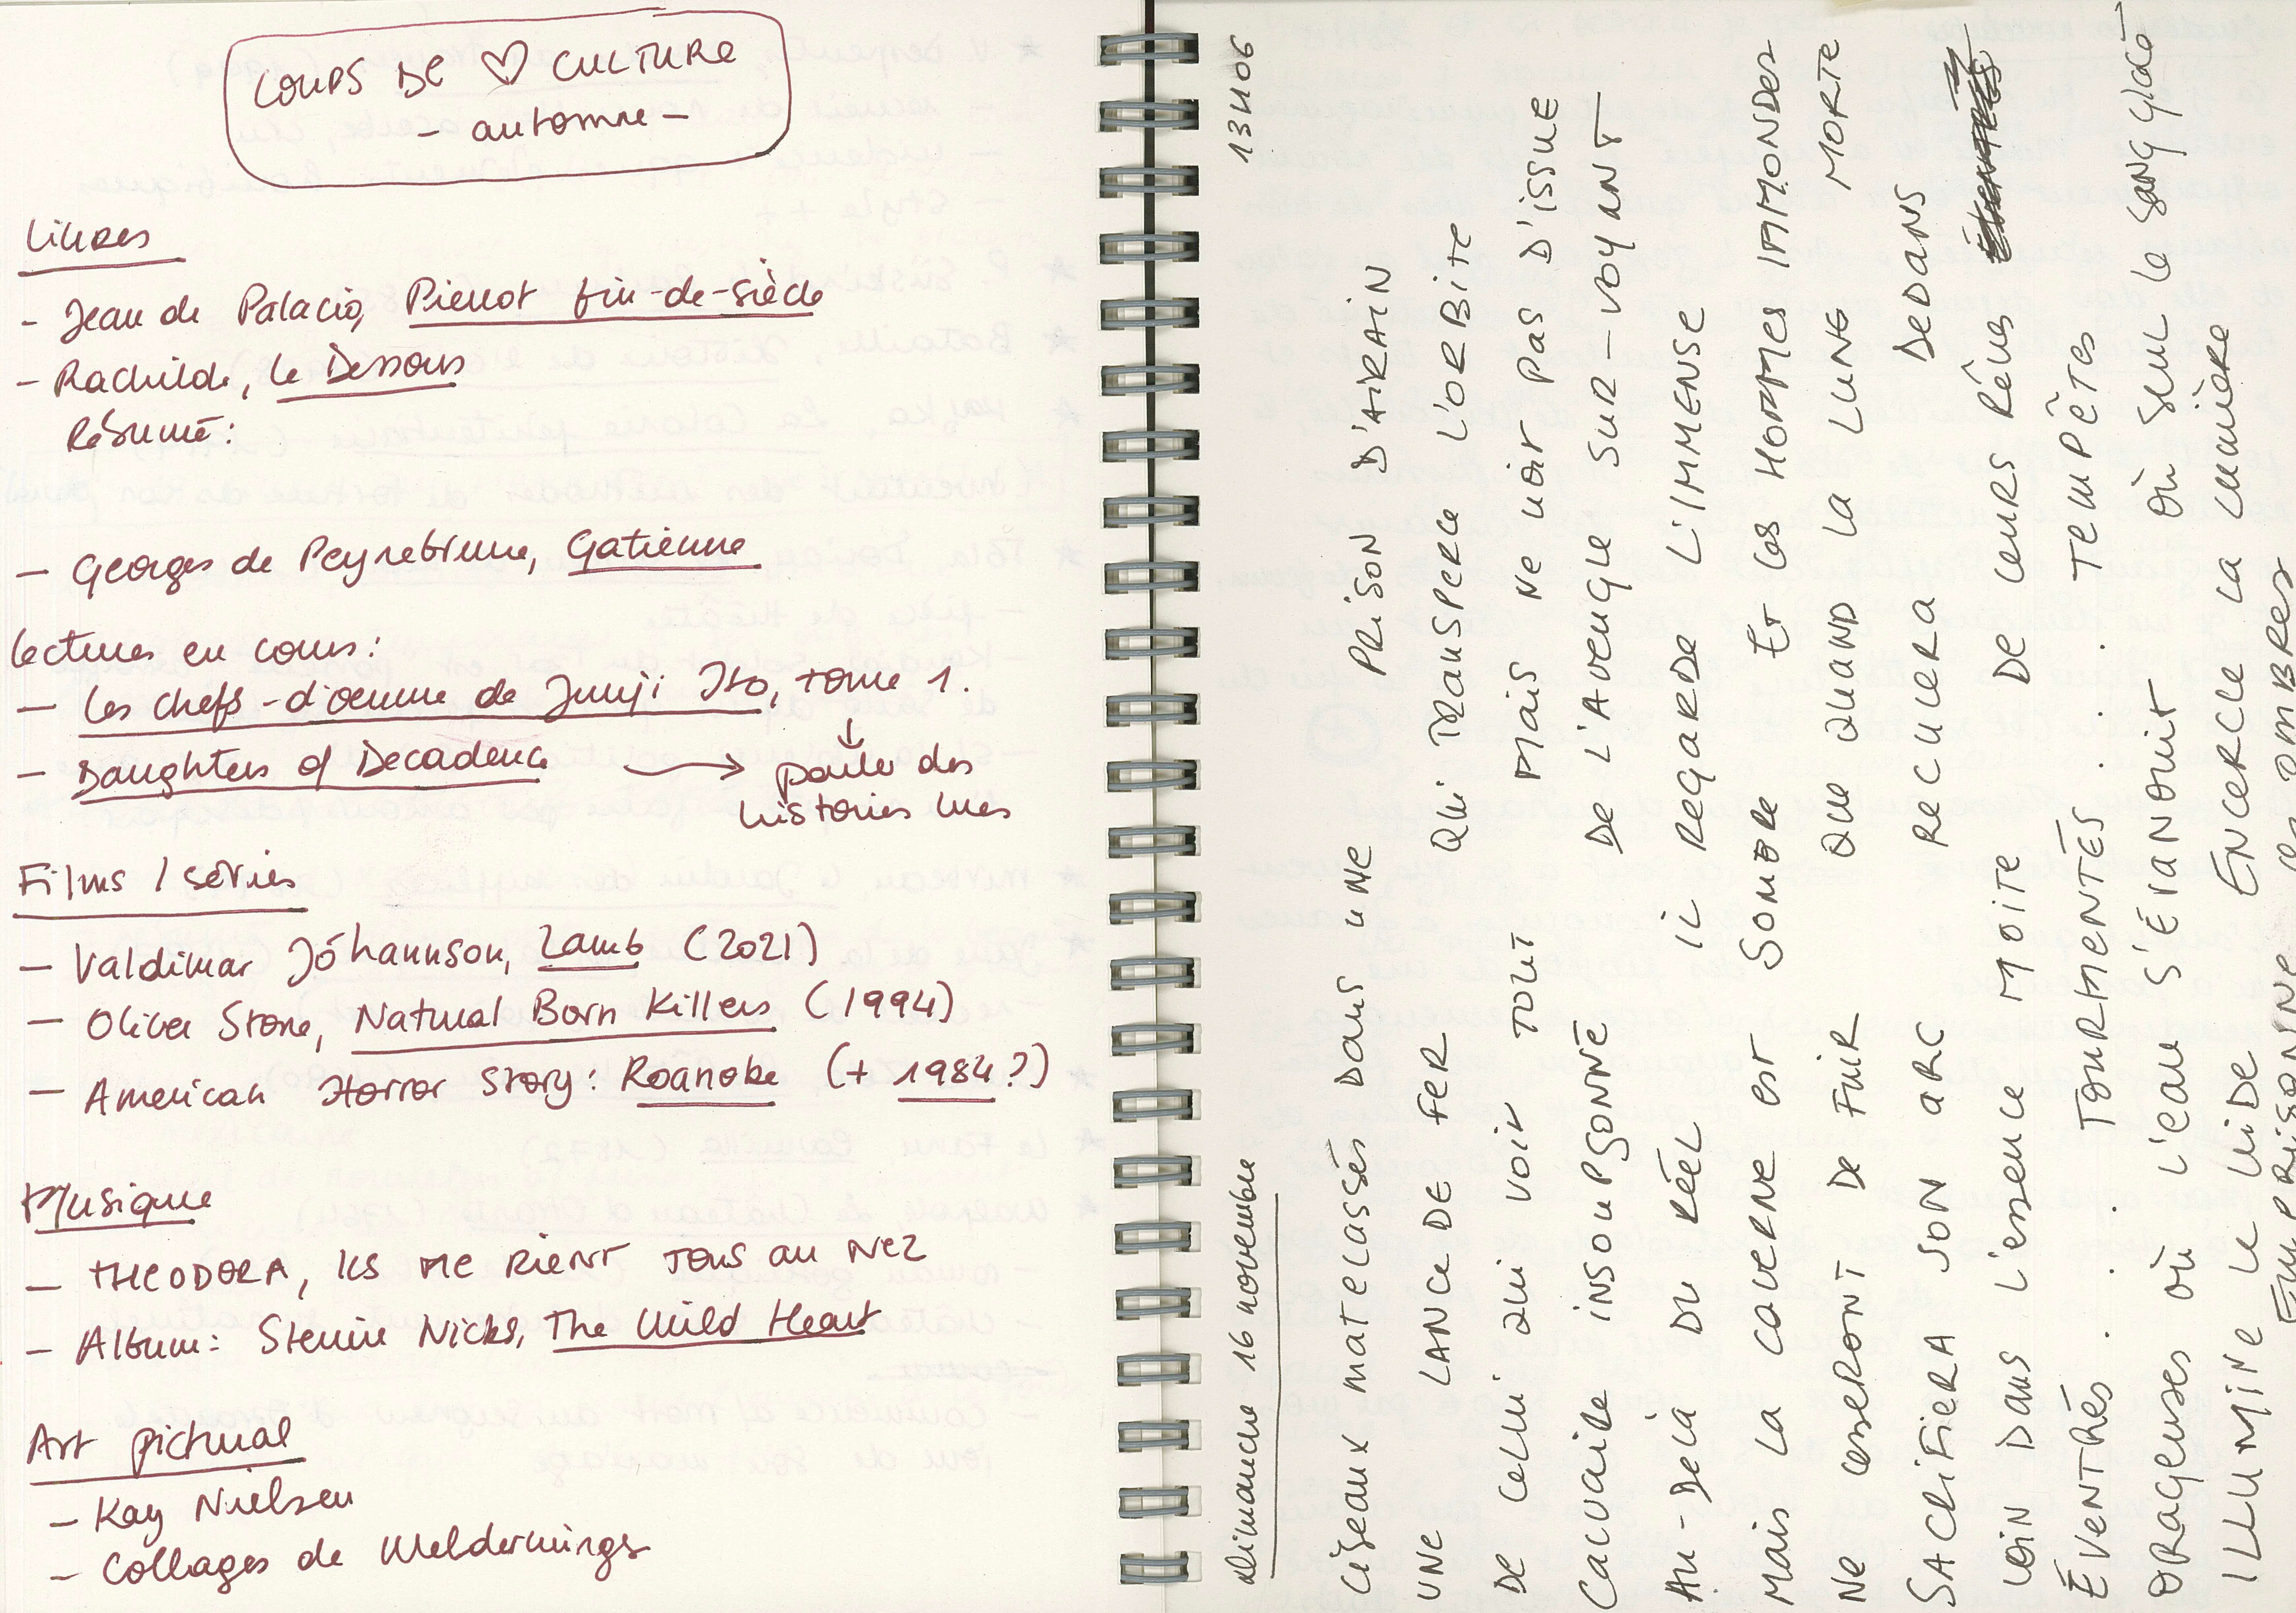 COUPS DE ♡ CULTURE
- automne -
Livres
- Jean de Palacio, Pierrot fin-de-siècle
- Rachilde, Le Dessous
Résumé :
- Georges de Peyrebrune, Gatienne
Lectures en cours :
- Les chefs-d'oeuvre de Junji Ito, tome 1.
↓
- Daughters of Decadence → parler des
histoires lues
Films / séries
- Valdimar Jóhannson, Lamb (2021)
- Oliver Stone, Natural Born Killers (1994)
- American Horror Story : Roanoke (+ 1984 ?)
Musique
- THEODORA, ILS ME RIENT TOUS AU NEZ
- Album : Stevie Nicks, The Wild Heart
Art pictural
- Kay Nielsen
- Collages de
dimanche 16 novembre 13H06
Ciseaux matelassés Dans UNE PRISON D'AIRAIN
UNE LANCE DE FER QUI TRANSPERCE L'ORBITE
DE CELUI QUI VOIT TOUT MAIS NE VOIT PAS D'ISSUE
INSOUPSONNÉ DE L'AVEUGLE SUR-VOYANT
AU-DELÀ DU RÉEL IL REGARDE L'IMMENSE
MAIS LA CAVERNE EST SOMBRE ET LES HOMMES IMMONDES
NE CESSERONT DE FUIR QUE QUAND LA LUNE MORTE
SACRIFIERA SON ARC RECULERA DEDANS
LOIN DANS L'ESSENCE MOITE DE LEURS RÊVES
ÉVENTRÉS . . . TOURMENTÉS . . . TEMPÊTES
ORAGEUSES OÙ L'EAU S'ÉVANOUIT OÙ SEUL LE SANG GLACÉ
ILLUMINE LE VIDE ENCERCLE LA LUMIÈRE
EMPRISONNE LES OMBRES